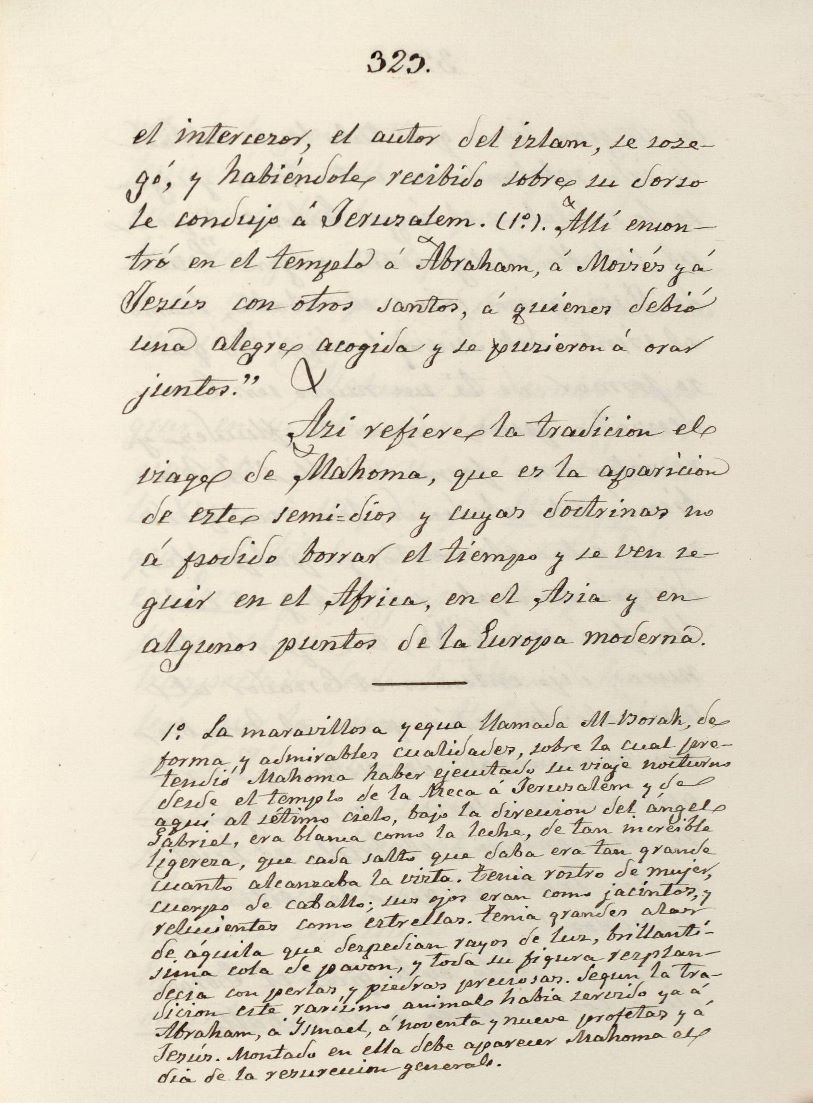 323.
el intercezor, el autor del izlam, se soze-
gó, y habiéndole recibido sobre su dorso
le condujo á Jeruzalem. (1º). Allí encon-
tró en el templo á Abraham, á Moizés y á
Jezús con otros santos, á quienes debió
una alegre acogida y se puzieron á orar
juntos."
Azi refiere la tradicion el
viage de Mahoma, que es la aparicion
de este semi=dios y cuyas doctrinas no
á podido borrar el tiempo y se ven se-
guir en el Africa, en el Azia y en
algunos puntos de la Europa moderna.
1º La maravillosa yegua llamada Al-Borak, de
forma y admirables cualidades, sobre la cual pre-
tendió Mahoma haber ejecutado su viaje nocturno
desde el templo de la Meca á Jeruzalem y de
aquí al sétimo cielo, bajo la direccion del ángel
Gabriel, era blanca como la leche, de tan increible
ligereza, que cada salto que daba era tan grande
cuanto alcanzaba la vizta. Tenia rostro de mujer,
cuerpo de caballo; sus ojos eran como jacintos, y
relucientes como eztrellas. Tenia grandes alas
de águila que despedian rayos de luz, brillantí-
sima cola de pavon, y toda su figura rezplan-
decia con perlas y piedras preciosas. Segun la tra-
dicion este rarísimo animal habia servido ya á
Abraham, á Ismael, á noventa y nueve profetas y á
Jezús. Montado en ella debe aparecer Mahoma el
dia de la rezureccion general.